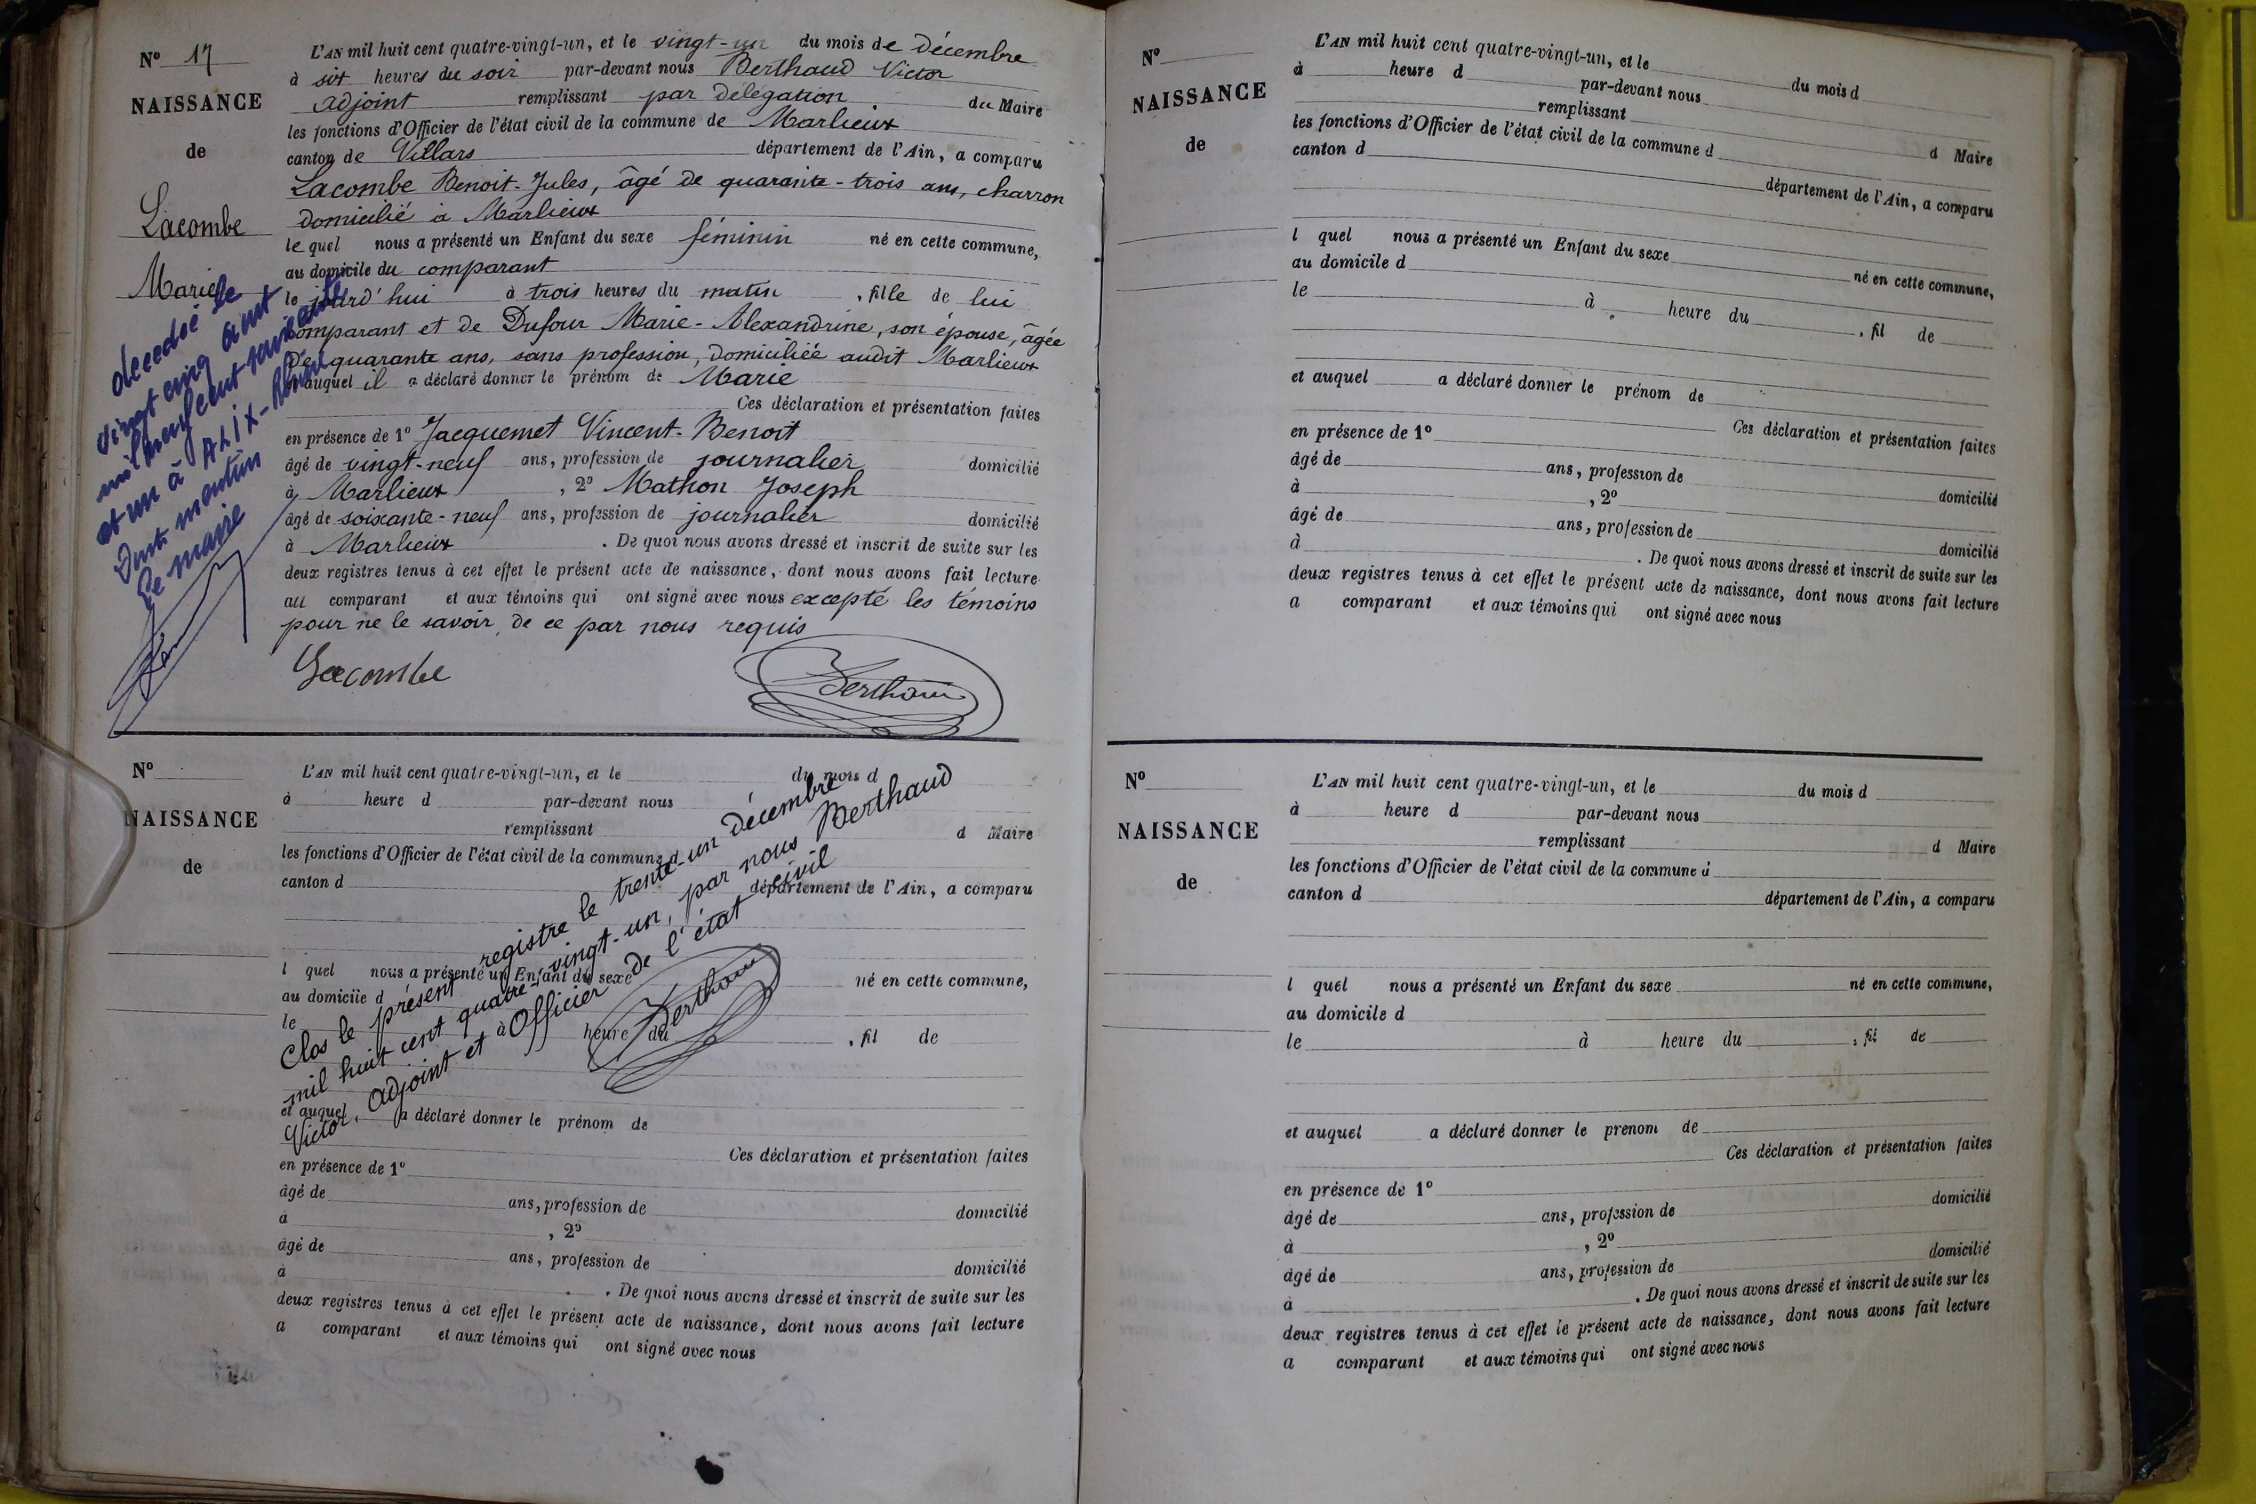 N° 17
NAISSANCE
de
Lacombe
Marie
L'AN mil huit cent quatre-vingt-un, et le vingt-un du mois de décembre
à six heures du soir par-devant nous Berthaud Victor
adjoint remplissant par délégation du Maire
les fonctions d'Officier de l'état civil de la commune de Marlieux
canton de Villars département de l'Ain, a comparu
Lacombe Benoit-Jules, âgé de quarante-trois ans, charron
domicilié à Marlieux
lequel nous a présenté un Enfant du sexe féminin né en cette commune,
au domicile du comparant
le jourd'hui à trois heures du matin, fille de lui
comparant et de Dufour Marie-Alexandrine, son épouse, âgée
de quarante ans, sans profession, domiciliée audit Marlieux
et auquel il a déclaré donner le prénom de Marie
Ces déclaration et présentation faites
en présence de 1° Jacquemet Vincent-Benoit
âgé de vingt-neuf ans, profession de journalier domicilié
à Marlieux, 2° Mathon Joseph
âgé de soixante-neuf ans, profession de journalier domicilié
à Marlieux. De quoi nous avons dressé et inscrit de suite sur les
deux registres tenus à cet effet le présent acte de naissance, dont nous avons fait lecture
au comparant et aux témoins qui ont signé avec nous excepté les témoins
pour ne le savoir, de ce par nous requis
Lacombe
Berthaud
decedié le
vingt cinq aout
mil neuf cent soixante
et un à ALIX-Rhône
Dont mention
Le maire
N°
NAISSANCE
de
L'AN mil huit cent quatre-vingt-un, et le du mois d
à heure d par-devant nous
remplissant d Maire
les fonctions d'Officier de l'état civil de la commune d
canton d département de l'Ain, a comparu
l quel nous a présenté un Enfant du sexe né en cette commune,
au domicile d
le à heure du , fil de
et auquel a déclaré donner le prénom de
Ces déclaration et présentation faites
en présence de 1°
âgé de ans, profession de domicilié
à , 2°
âgé de ans, profession de domicilié
à . De quoi nous avons dressé et inscrit de suite sur les
deux registres tenus à cet effet le présent acte de naissance, dont nous avons fait lecture
a comparant et aux témoins qui ont signé avec nous
Clos le présent registre le trente-un décembre
mil huit cent quatre-vingt-un, par nous Berthaud
Victor, adjoint et Officier de l'état civil
Berthaud
N°
NAISSANCE
de
L'AN mil huit cent quatre-vingt-un, et le du mois d
à heure d par-devant nous
remplissant d Maire
les fonctions d'Officier de l'état civil de la commune d
canton d département de l'Ain, a comparu
l quel nous a présenté un Enfant du sexe né en cette commune,
au domicile d
le à heure du , fil de
et auquel a déclaré donner le prénom de
Ces déclaration et présentation faites
en présence de 1°
âgé de ans, profession de domicilié
à , 2°
âgé de ans, profession de domicilié
à . De quoi nous avons dressé et inscrit de suite sur les
deux registres tenus à cet effet le présent acte de naissance, dont nous avons fait lecture
a comparant et aux témoins qui ont signé avec nous
N°
NAISSANCE
de
L'AN mil huit cent quatre-vingt-un, et le du mois d
à heure d par-devant nous
remplissant d Maire
les fonctions d'Officier de l'état civil de la commune d
canton d département de l'Ain, a comparu
l quel nous a présenté un Enfant du sexe né en cette commune,
au domicile d
le à heure du , fil de
et auquel a déclaré donner le prenom de
Ces déclaration et présentation faites
en présence de 1°
âgé de ans, profession de domicilié
à , 2°
âgé de ans, profession de domicilié
à . De quoi nous avons dressé et inscrit de suite sur les
deux registres tenus à cet effet le présent acte de naissance, dont nous avons fait lecture
a comparant et aux témoins qui ont signé avec nous